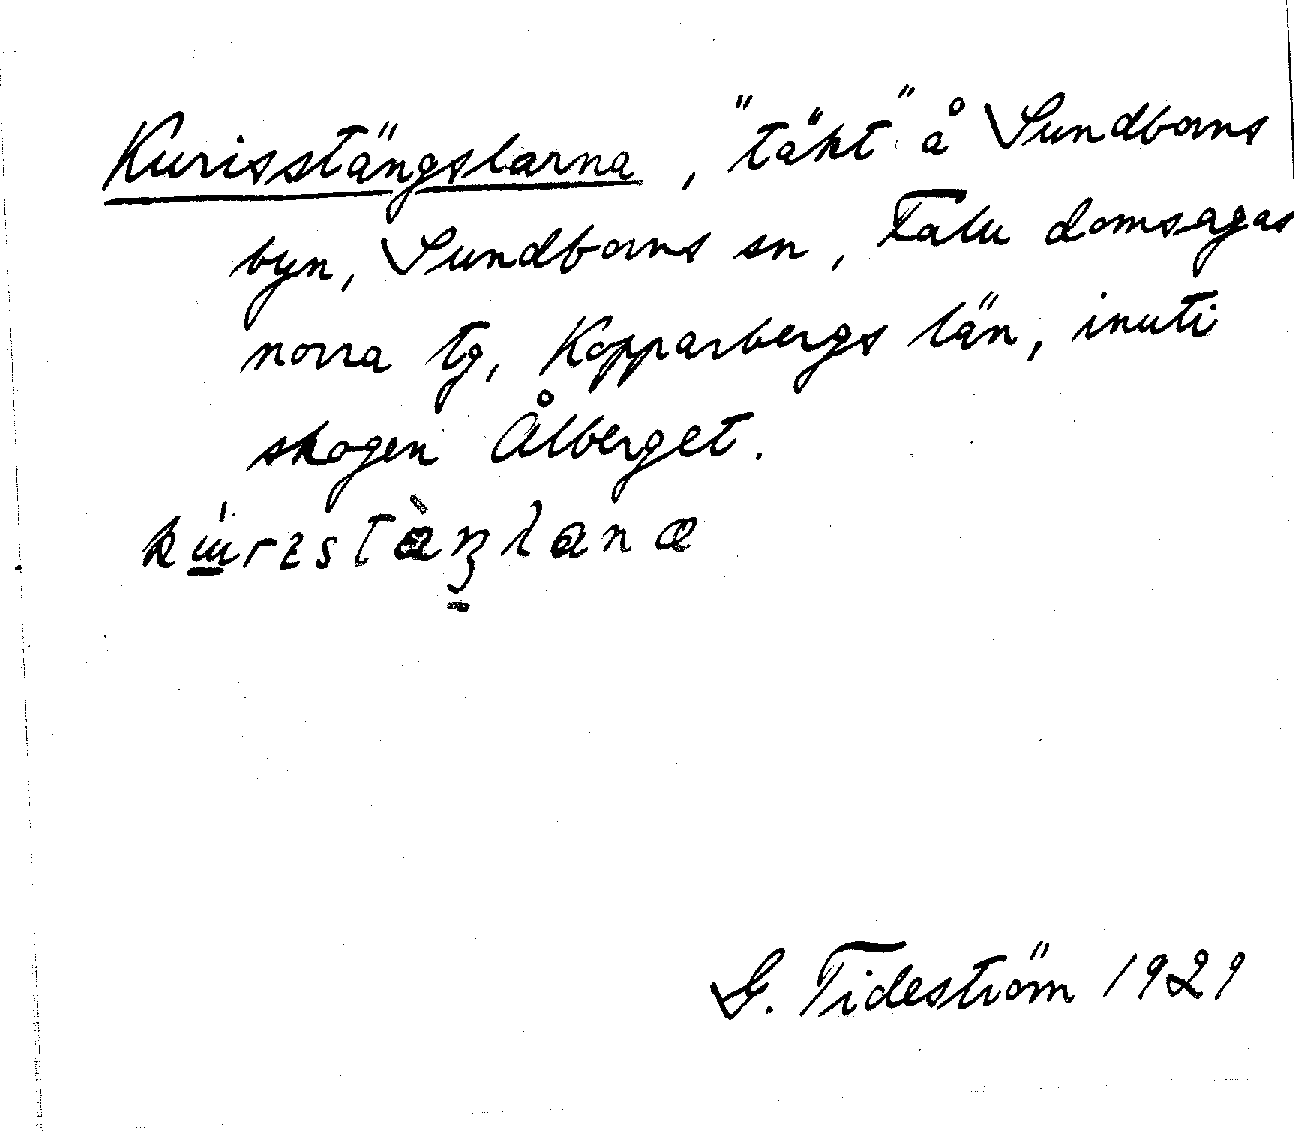 Kurisstängslarna, "täkt" å Sundborns
byn, Sundborns sn, Falu domsagas
norra tg, Kopparbergs län, inuti
skogen Ålberget.
G. Tideström 1929